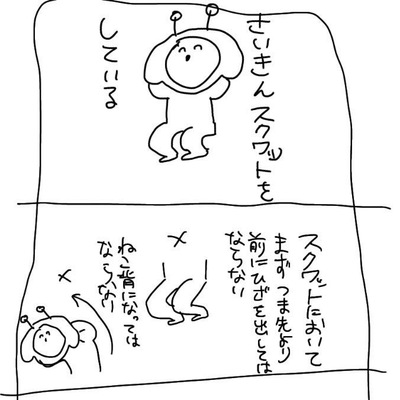 さいきんスクワットを
している
スクワットにおいて
まずつま先より
前にひざを出しては
ならない
ねこ背になっては
ならない